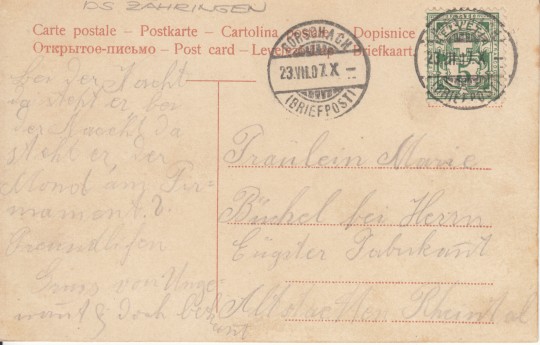 DS ZÄHRINGEN
Carte postale – Postkarte – Cartolina Dopisnice
Открытое-письмо – Post card – Briefkaart.
RORSCHACH
23.VII.07.X
(BRIEFPOST)
5
Bei der Nacht
da steht er bei
der Nacht, da
steht er, der
Mond am Fir-
mament.?
Freundlichen
Gruss von Unge
nannt & doch bek
annt
Fräulein Marie
Büchel bei Herrn
Eugster Fabrikant
Altstätten Rheintal